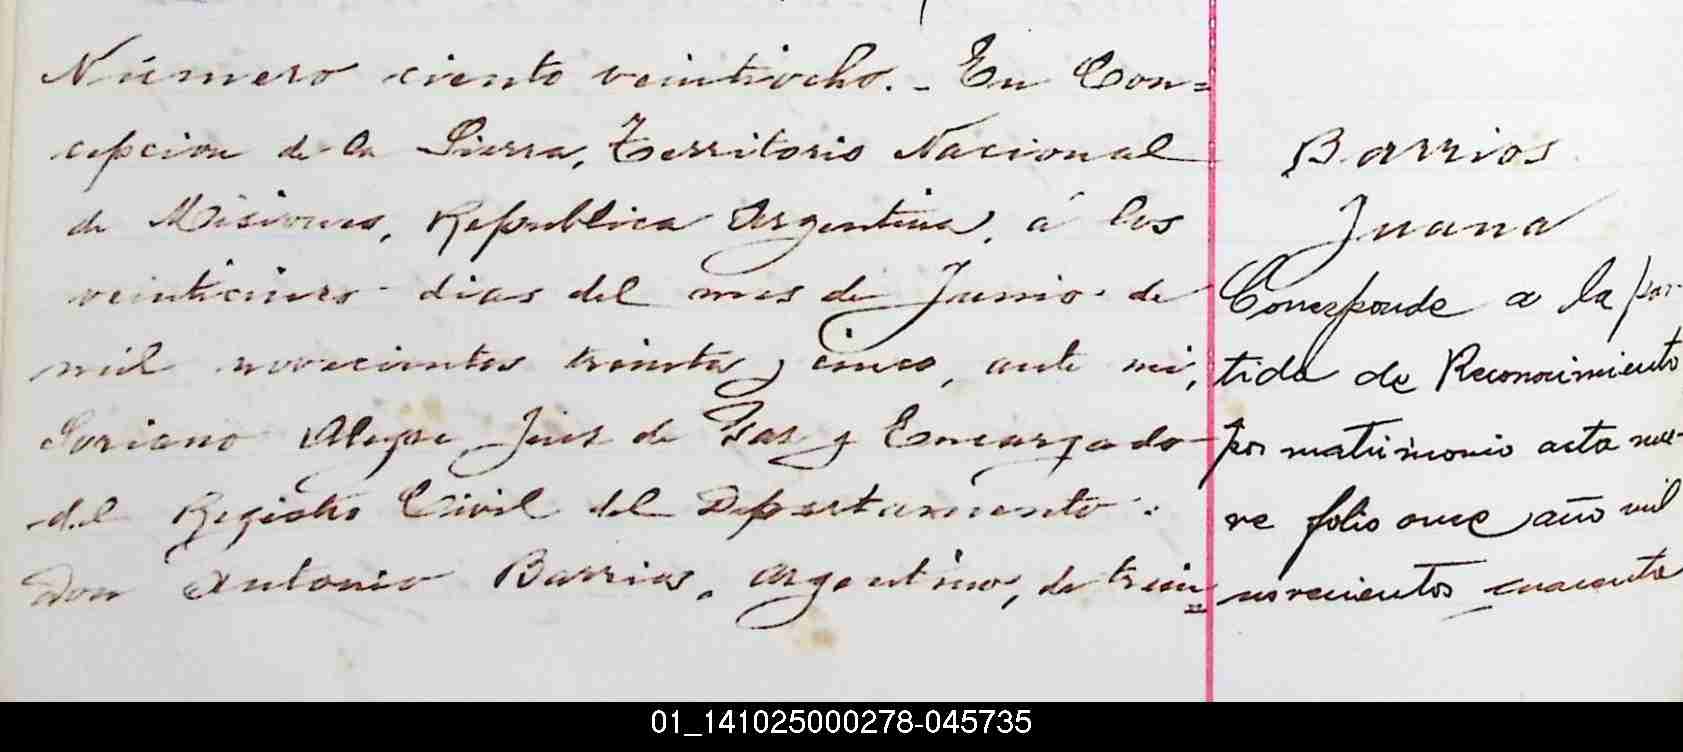 Número ciento veintiocho. - En Con=
cepcion de la Sierra, Territorio Nacional
de Misiones, Republica Argentina, á los
veinticinco dias del mes de Junio de
mil novecientos treinta y cinco, ante mi,
Soriano Alegre Juez de Paz y Encargado
del Registro Civil del Departamento.
Don Antonio Barrios, argentino, de trein
Barrios
Juana
Corresponde a la par-
tida de Reconocimiento
por matrimonio acta nue-
ve folio once año mil
novecientos cuarenta
01_141025000278-045735